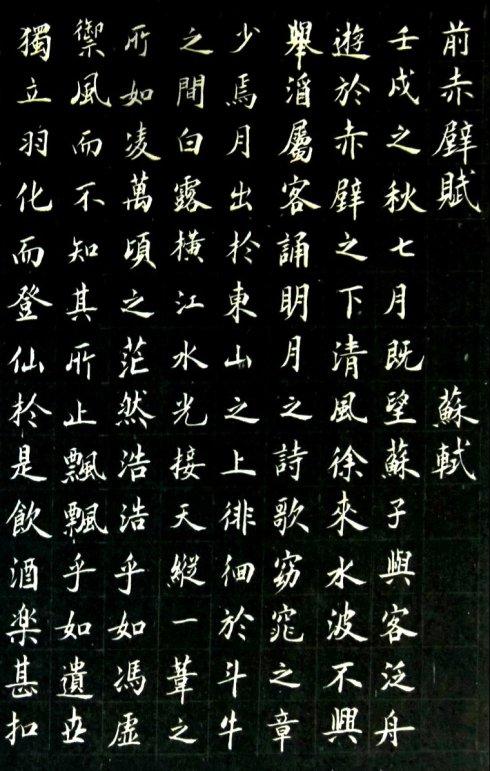 前赤壁賦 蘇軾
壬戌之秋七月既望蘇子與客泛舟
遊於赤壁之下清風徐來水波不興
舉酒屬客誦明月之詩歌窈窕之章
少焉月出於東山之上徘徊於斗牛
之間白露橫江水光接天縱一葦之
所如凌萬頃之茫然浩浩乎如馮虛
禦風而不知其所止飄飄乎如遺世
獨立羽化而登仙於是飲酒楽甚扣